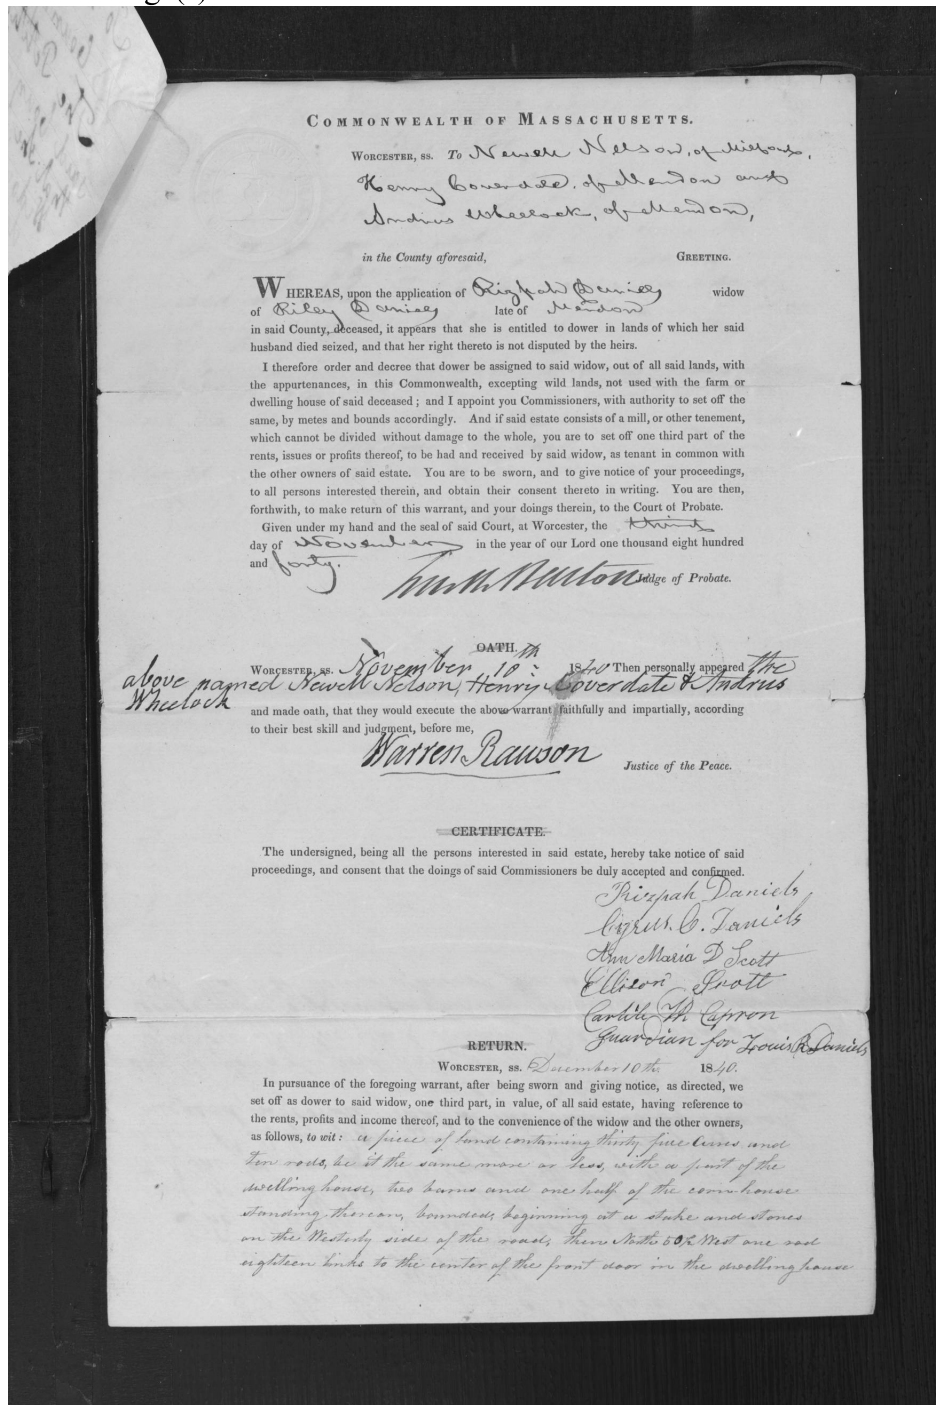 COMMONWEALTH OF MASSACHUSETTS.
WORCESTER, SS. To Newell Nelson, of Milford,
Henry Coverdale, of Mendon and
Andrus Wheelock, of Mendon,
in the County aforesaid, GREETING.
WHEREAS, upon the application of Rizpah Daniels widow
of Riley Daniels late of Mendon
in said County, deceased, it appears that she is entitled to dower in lands of which her said
husband died seized, and that her right thereto is not disputed by the heirs.
I therefore order and decree that dower be assigned to said widow, out of all said lands, with
the appurtenances, in this Commonwealth, excepting wild lands, not used with the farm or
dwelling house of said deceased; and I appoint you Commissioners, with authority to set off the
same, by metes and bounds accordingly. And if said estate consists of a mill, or other tenement,
which cannot be divided without damage to the whole, you are to set off one third part of the
rents, issues or profits thereof, to be had and received by said widow, as tenant in common with
the other owners of said estate. You are to be sworn, and to give notice of your proceedings,
to all persons interested therein, and obtain their consent thereto in writing. You are then,
forthwith, to make return of this warrant, and your doings therein, to the Court of Probate.
Given under my hand and the seal of said Court, at Worcester, the third
day of November in the year of our Lord one thousand eight hundred
and forty.
Judge of Probate.
OATH.
WORCESTER, SS. November 10th 1840 Then personally appeared the
above named Newell Nelson, Henry Coverdale & Andrus
Wheelock
and made oath, that they would execute the above warrant faithfully and impartially, according
to their best skill and judgment, before me,
Warren Rawson
Justice of the Peace.
CERTIFICATE.
The undersigned, being all the persons interested in said estate, hereby take notice of said
proceedings, and consent that the doings of said Commissioners be duly accepted and confirmed.
Rizpah Daniels
Cyrus C. Daniels
Ann Maria D Scott
Ellison Scott
Carlile W Capron
Guardian for Louis R Daniels
RETURN.
WORCESTER, SS. December 10th 1840.
In pursuance of the foregoing warrant, after being sworn and giving notice, as directed, we
set off as dower to said widow, one third part, in value, of all said estate, having reference to
the rents, profits and income thereof, and to the convenience of the widow and the other owners,
as follows, to wit: a piece of land containing thirty five acres and
ten rods, be it the same more or less, with a part of the
dwelling house, two barns and one half of the corn-house
standing thereon, bounded, beginning at a stake and stones
on the Westerly side of the road, then North 50½ West one rod
eighteen links to the center of the front door in the dwelling house